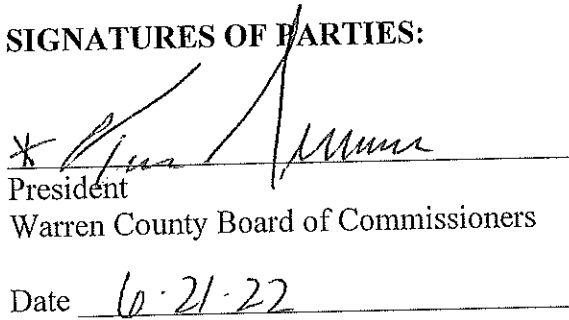 SIGNATURES OF PARTIES:
*
President
Warren County Board of Commissioners
Date 6·21·22